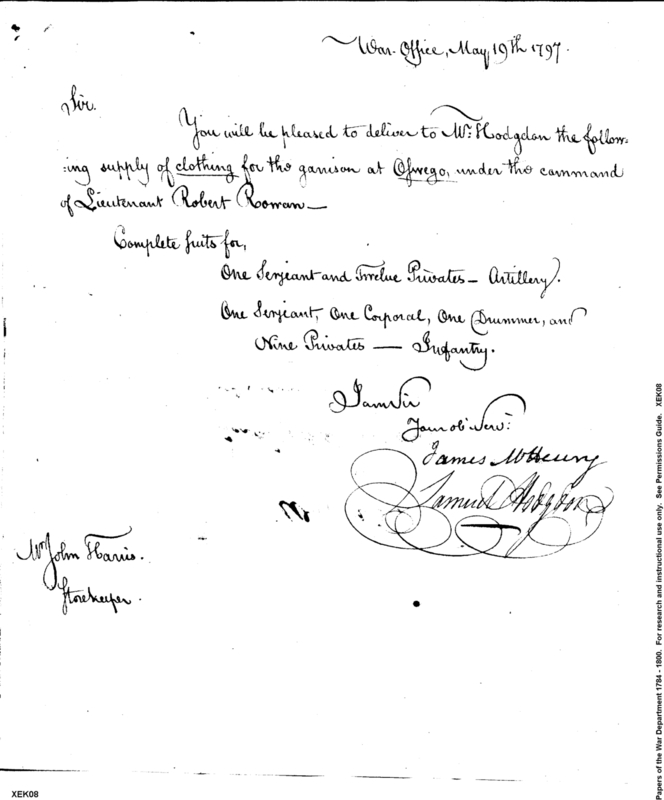 War-Office, May 19th 1797.
Sir.
You will be pleased to deliver to Mr. Hodgdon the follow-
:ing supply of clothing for the garrison at Oswego, under the command
of Lieutenant Robert Rowan—
Complete suits for,
One Serjeant and Twelve Privates — Artillery.
One Serjeant, One Corporal, One Drummer, and
Nine Privates — Infantry.
I am Sir
Your ob. Serv.
James McHenry
Samuel Hodgdon
Mr John Harris.
Storekeeper.
Papers of the War Department 1784 - 1800. For research and instructional use only. See Permissions Guide. XEK08
XEK08